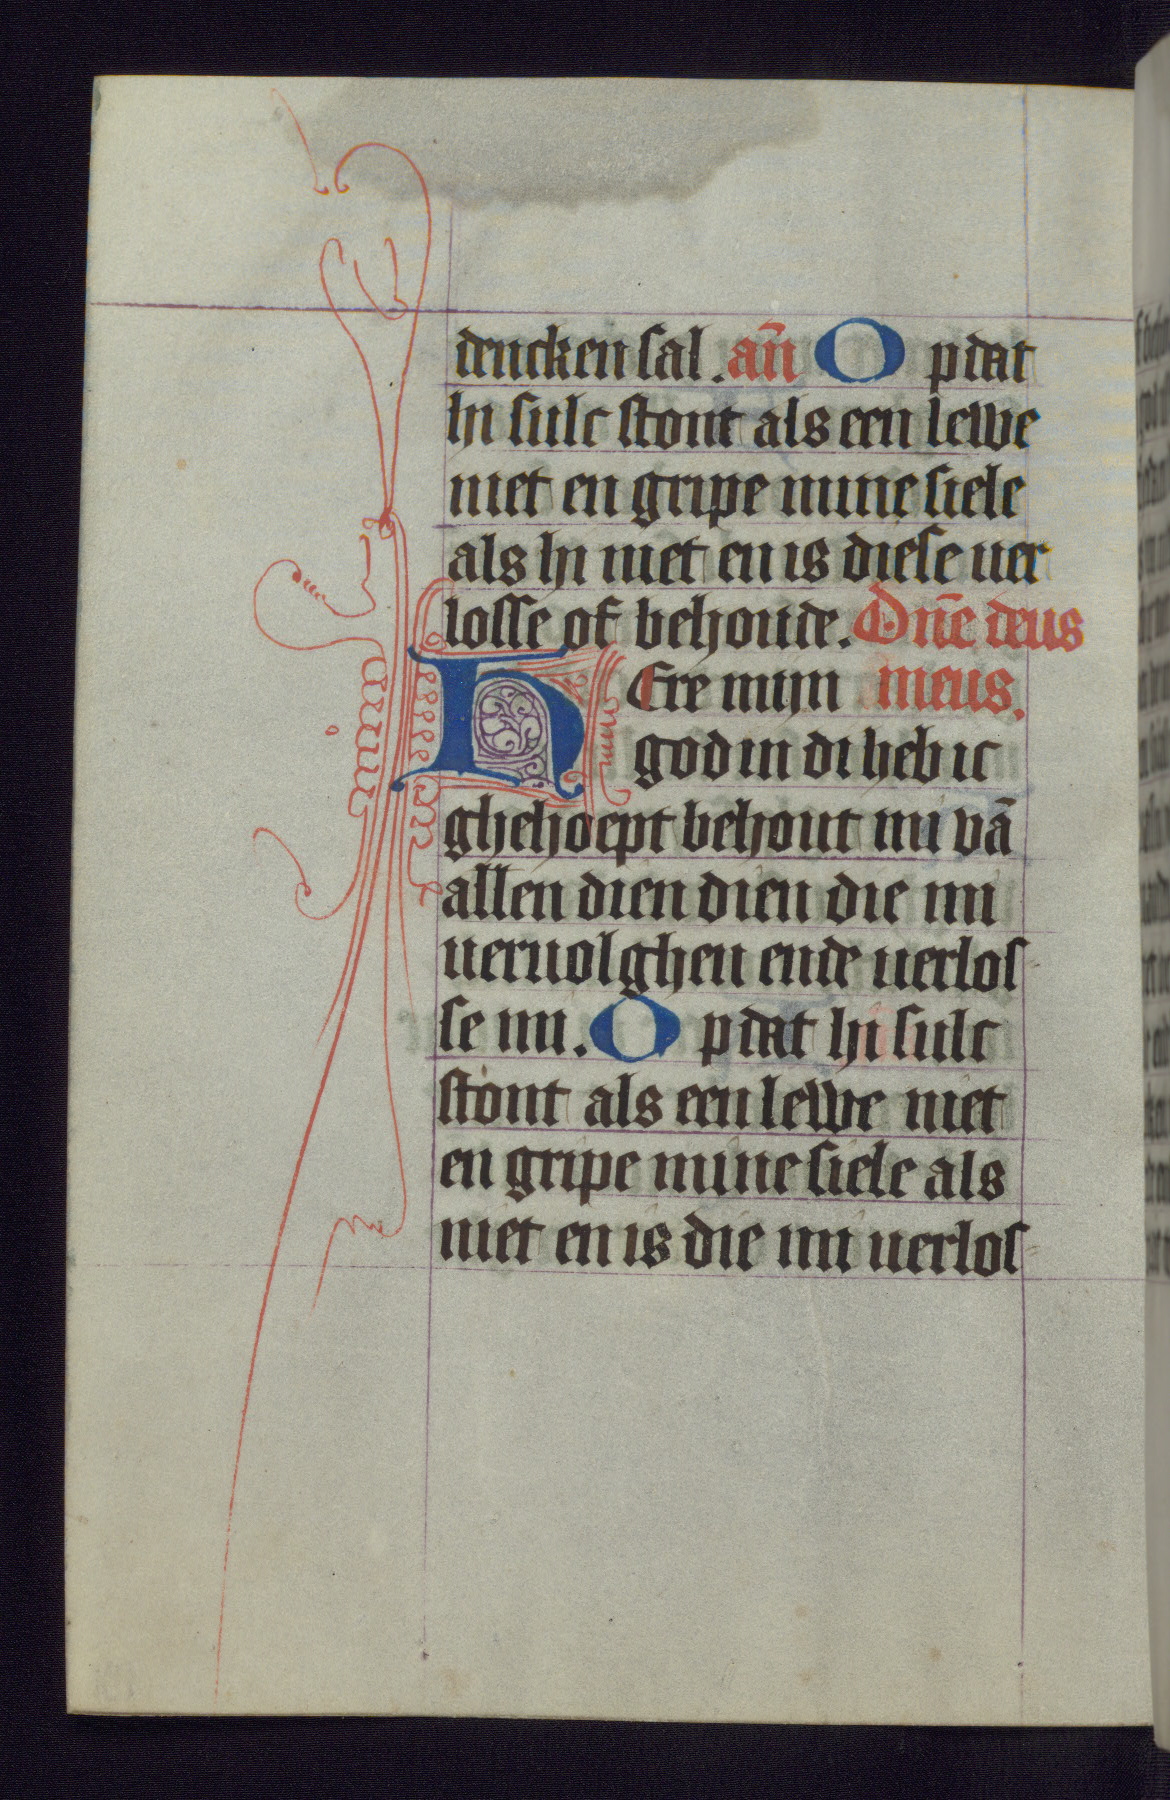 dencken sal. an̄ O pdat
hi sulc stont als een lewe
niet en gripe mine siele
als hi niet en is diese ver
losse of behoude. Dn̄e deus
HEre mijn meus.
god in di heb ic
ghehoept behout mi vā
allen dien dien die mi
veruolghen ende verlos
se mi. O pdat hi sulc
stont als een lewe niet
en gripe mine siele als
niet en is die mi verlos